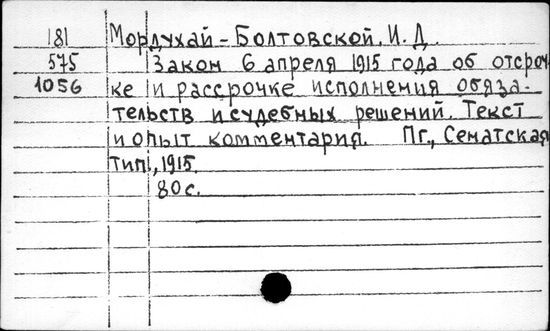 181 Мордухай-Болтовской, И. Д.
575 Закон 6 апреля 1915 года об отсроч-
1056 ке и рассрочке исполнения обяза-
тельств и судебных решений. Текст
и опыт комментария. Пг., Сенатская
тип., 1915.
80 с.